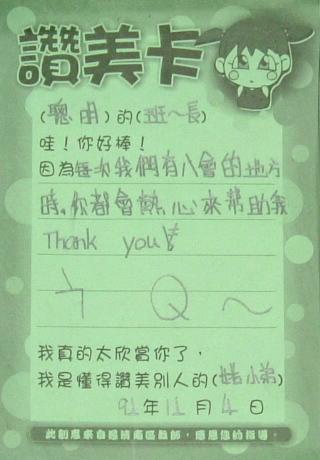 讚美卡
(聰明)的(班～長)
哇！你好棒！
因為每次我們有ㄅ會的地方
時,你都會熱心來幫助我
Thank you!
ㄘ Q ～
我真的太欣當你了，
我是懂得讚美別人的(小弟)
91年11月4日
此創意來自